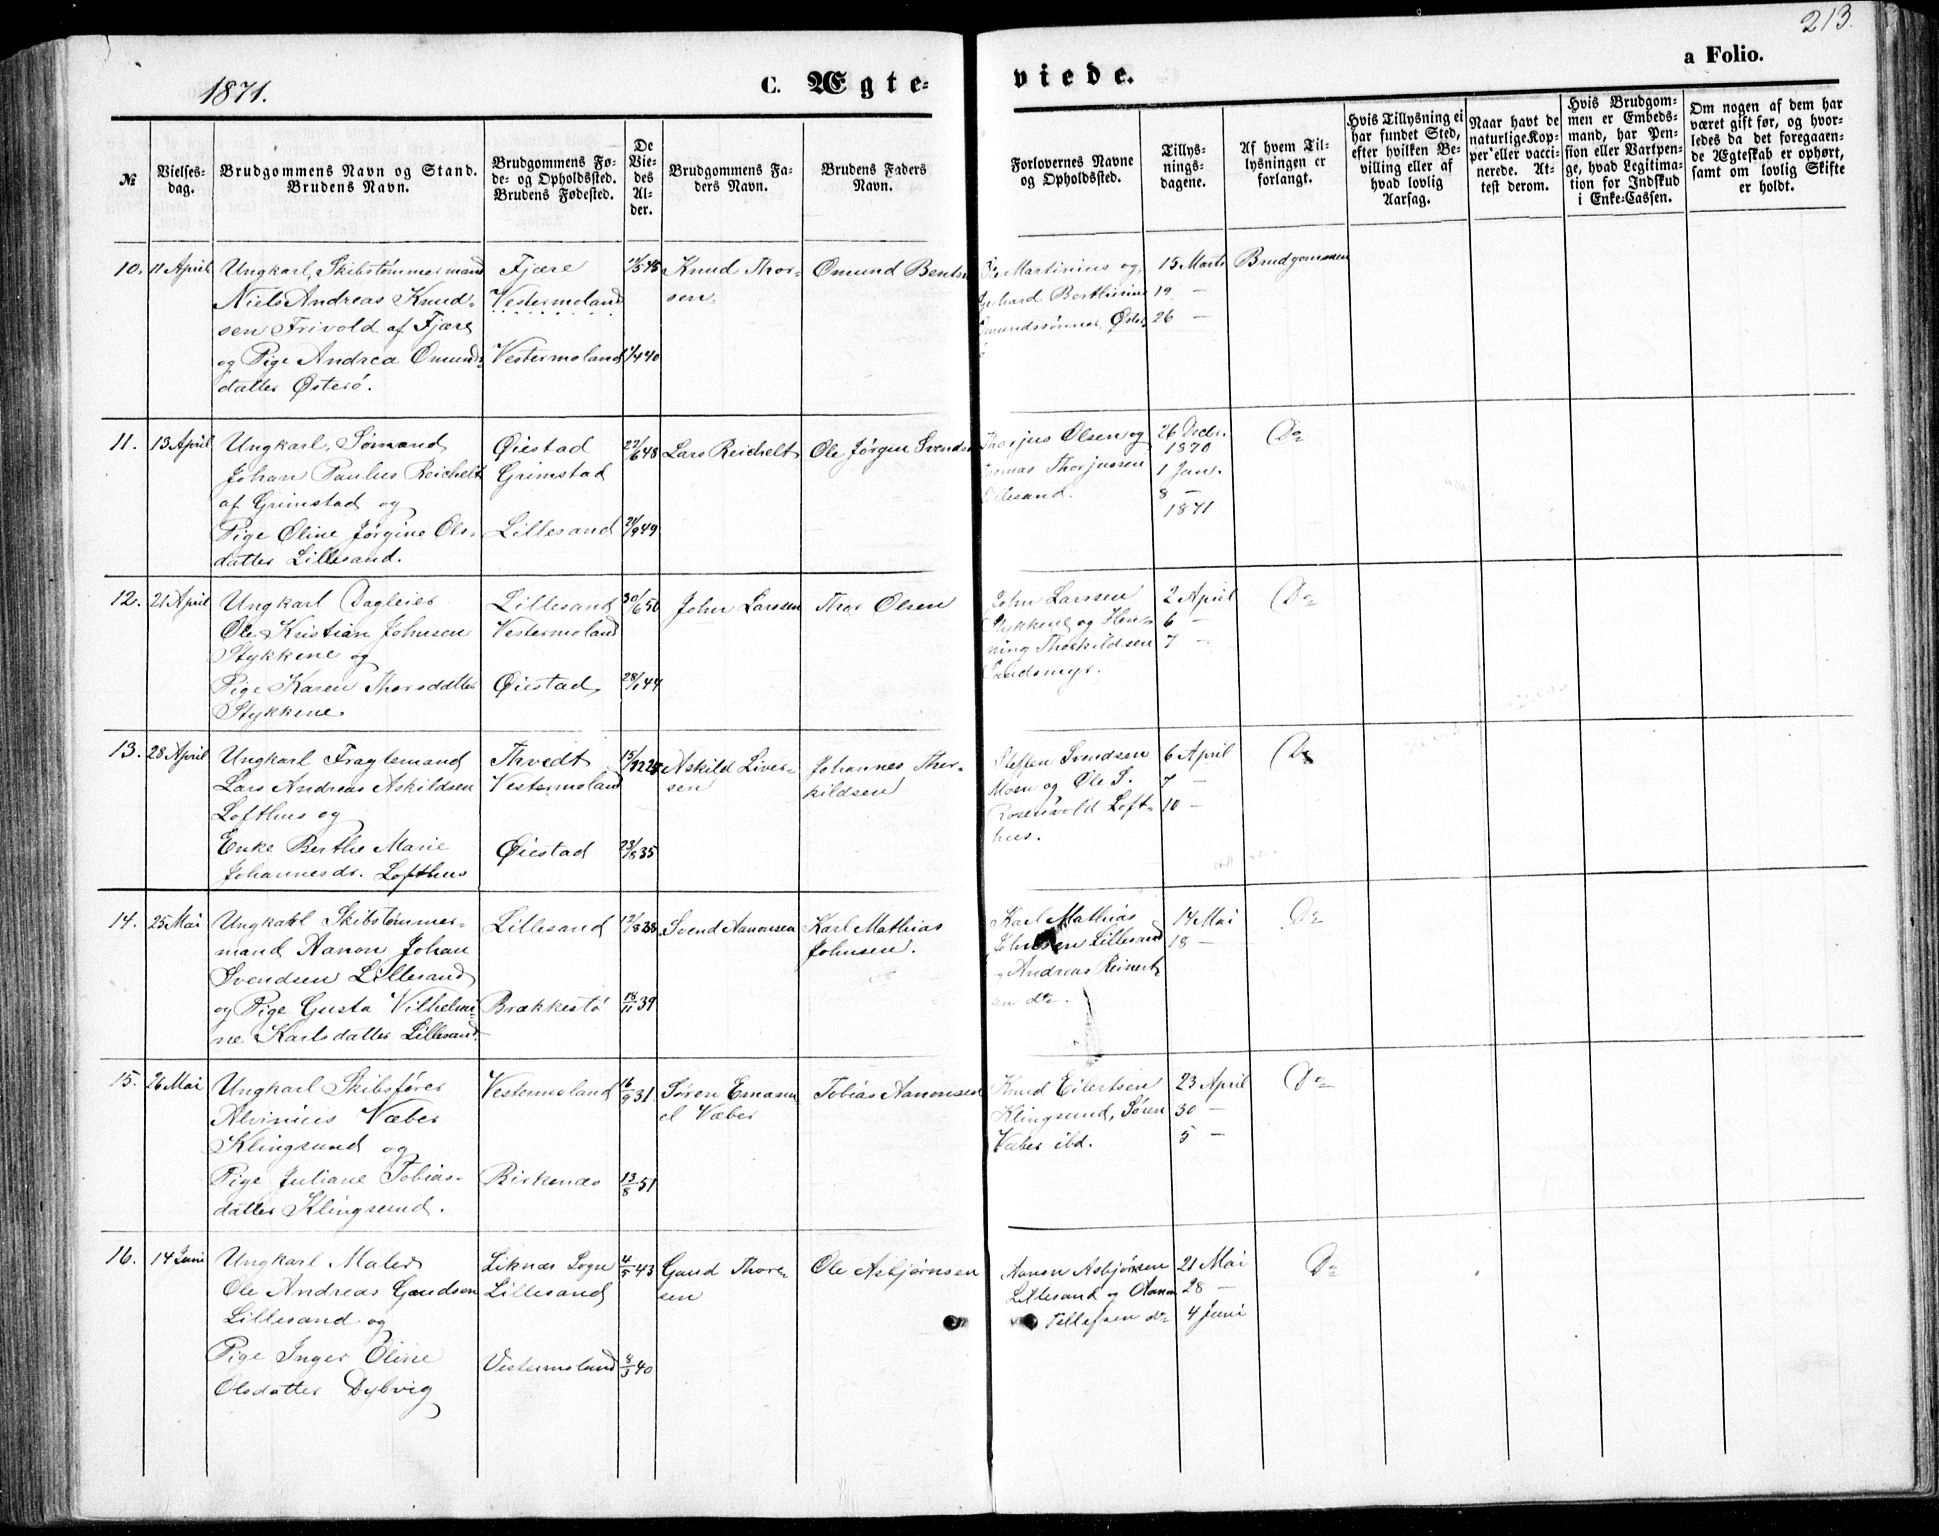 213.
1871.
C. Ægte-
viede.
a Folio.
№
Vielses-
dag.
Brudgommens Navn og Stand.
Brudens Navn.
Brudgommens Fø-
de- og Opholdssted.
Brudens Fødested.
De
Vie-
des
Al-
der.
Brudgommens Fa-
ders Navn.
Brudens Faders
Navn.
Forlovernes Navne
og Opholdssted.
Tillys-
nings-
dagene.
Af hvem Til-
lysningen er
forlangt.
Hvis Tillysning ei
har fundet Sted,
efter hvilken Be-
villing eller af
hvad lovlig
Aarsag.
Naar havt de
naturlige Kop-
per eller vacci-
nerede. At-
test derom.
Hvis Brudgom-
men er Embeds-
mand, har Pen-
sion eller Vartpen-
ge, hvad Legitima-
tion for Indskud
i Enke-Cassen.
Om nogen af dem har
været gift før, og hvor-
ledes da det foregaaen-
de Ægteskab er ophørt,
samt om lovlig Skifte
er holdt.
10. 11 April
Ungkarl, Skibstømmermand
Niels Andreas Knud-
sen Frivold af Fjære
og Pige Andrea Omunds-
datter Østerø.
Fjære
Vestermoland
Vestermoland
Knud Thor-
sen.
Omund Bents
Martinius og
Berthinius
mundssønner, Øster
15 Marts
19 —
26 —
Brudgommen
11. 13 April
Ungkarl, Sømand
Johan Paulus Reichelt
af Grimstad og
Pige Oline Jørgine Ols-
datter Lillesand.
Øiestad
Grimstad
Lillesand
22/6 48
21/9 49
Lars Reichelt
Ole Jørgen Svends
Thorjus Olsen og
Thorjussen
llesand.
26 Decbr.
1870
1 Jan.
8 —
1871
Do
12. 21 April
Ungkarl Dagleier
Ole Kristian Johnsen
Stykkene og
Pige Karen Thorsdatter
Stykkene
Lillesand
Vestermoland
Øiestad
30/6 50
28/1 44
John Larssen
Thor Olsen
John Larssen
Stykkene og Hen-
ning Thorkildsen
Sandsmyr.
2 April
6 —
7 —
Do
13. 28 April
Ungkarl Fragtemand
Lars Andreas Askildsen
Lofthus og
Enke Berthe Marie
Johannesdr. Lofthus
Thvedt
Vestermoland
Øiestad
23/8 35
Askild Liver-
sen
Johannes Thor-
kildsen
Steffen Svendsen
Moen og Ole S.
Rosenvold Loft-
hus.
6 April
7 —
10 —
Do
14. 25 Mai
Ungkarl Skibstømmer-
mand Aanon Johan
Svendsen Lillesand
og Pige Gusta Vilhelmi-
ne Karlsdatter Lillesand.
Lillesand
Brækkestø
12/8 38
18/11 39
Svend Aanonsen
Karl Mathias
Johnsen.
Karl Mathias
Johnsen Lillesand
og Andreas Reinert
sen do.
14 Mai
18 —
Do
15. 26 Mai
Ungkarl Skibsfører
Alvinius Væber
Klingsund og
Pige Juliane Tobias-
datter Klingsund.
Vestermoland
Birkenæs
16/9 31
13/8 51
Søren Emanu-
el Væber
Tobias Aanonsen
Knud Eilertsen
Klingsund, Søren
Væber ibd.
23 April
30 —
5 —
Do
16. 14 Juni
Ungkarl Maler
Ole Andreas Gundsen
Lillesand og
Pige Inger Oline
Olsdatter Dybvig
Liknæs Sogn
Lillesand
Vestermoland
4/5 43
8/3 40
Thore-
sen
Ole Asbjørnsen
Aanon Asbjørnsen
Lillesand og Aanon
Tellefsen do
21 Mai
28 —
4 Juni
Do